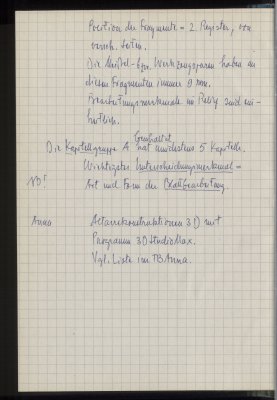 Position der Fragmente = 2. Register, von
versch. Seiten.
Die Meißel- bzw. Werkzeugspuren haben an
diesen Fragmenten immer 9 mm.
Bearbeitungsmerkmale im Relief sind ein-
heitlich.
Formhaltat
Die Kapitellgruppe A hat mindestens 5 Kapitelle.
Wichtigstes Unterscheidungsmerkmal =
NB! Art und Form der Blattbearbeitung.
Anna Altarrekonstruktionen 3D mit
Programm 3D StudioMax.
Vgl. Liste im TB Anna.